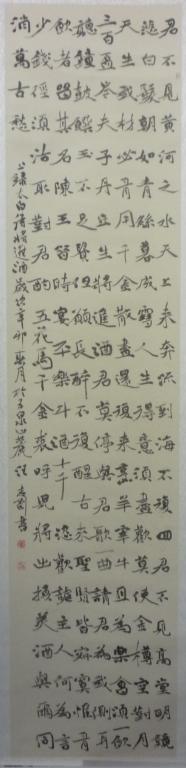 君不見黃河之水天上來奔流到海不復回君不見高堂明鏡
悲白髮朝如青絲暮成雪人生得意須盡歡莫使金樽空對月
天生我材必有用千金散盡還復來烹羊宰牛且為樂會須一飲
三百杯岑夫子丹丘生將進酒君莫停與君歌一曲請君為我傾耳
聽鐘鼓饌玉不足貴但願長醉不復醒古來聖賢皆寂寞惟有
飲者留其名陳王昔時宴平樂斗酒十千恣歡謔主人何為言
少錢徑須沽取對君酌五花馬千金裘呼兒將出換美酒與爾同
消萬古愁
上錄李白詩將進酒歲次辛卯月於書